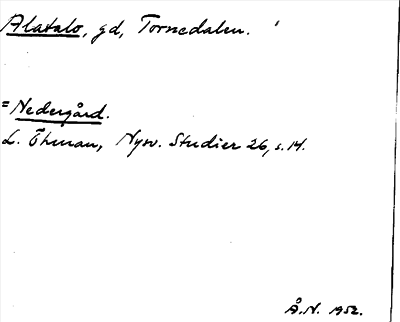 Alatalo, gd, Tornedalen.
= Nedergård.
L. Ehman, Nysv. Studier 26, s. 14.
Å.N. 1952.